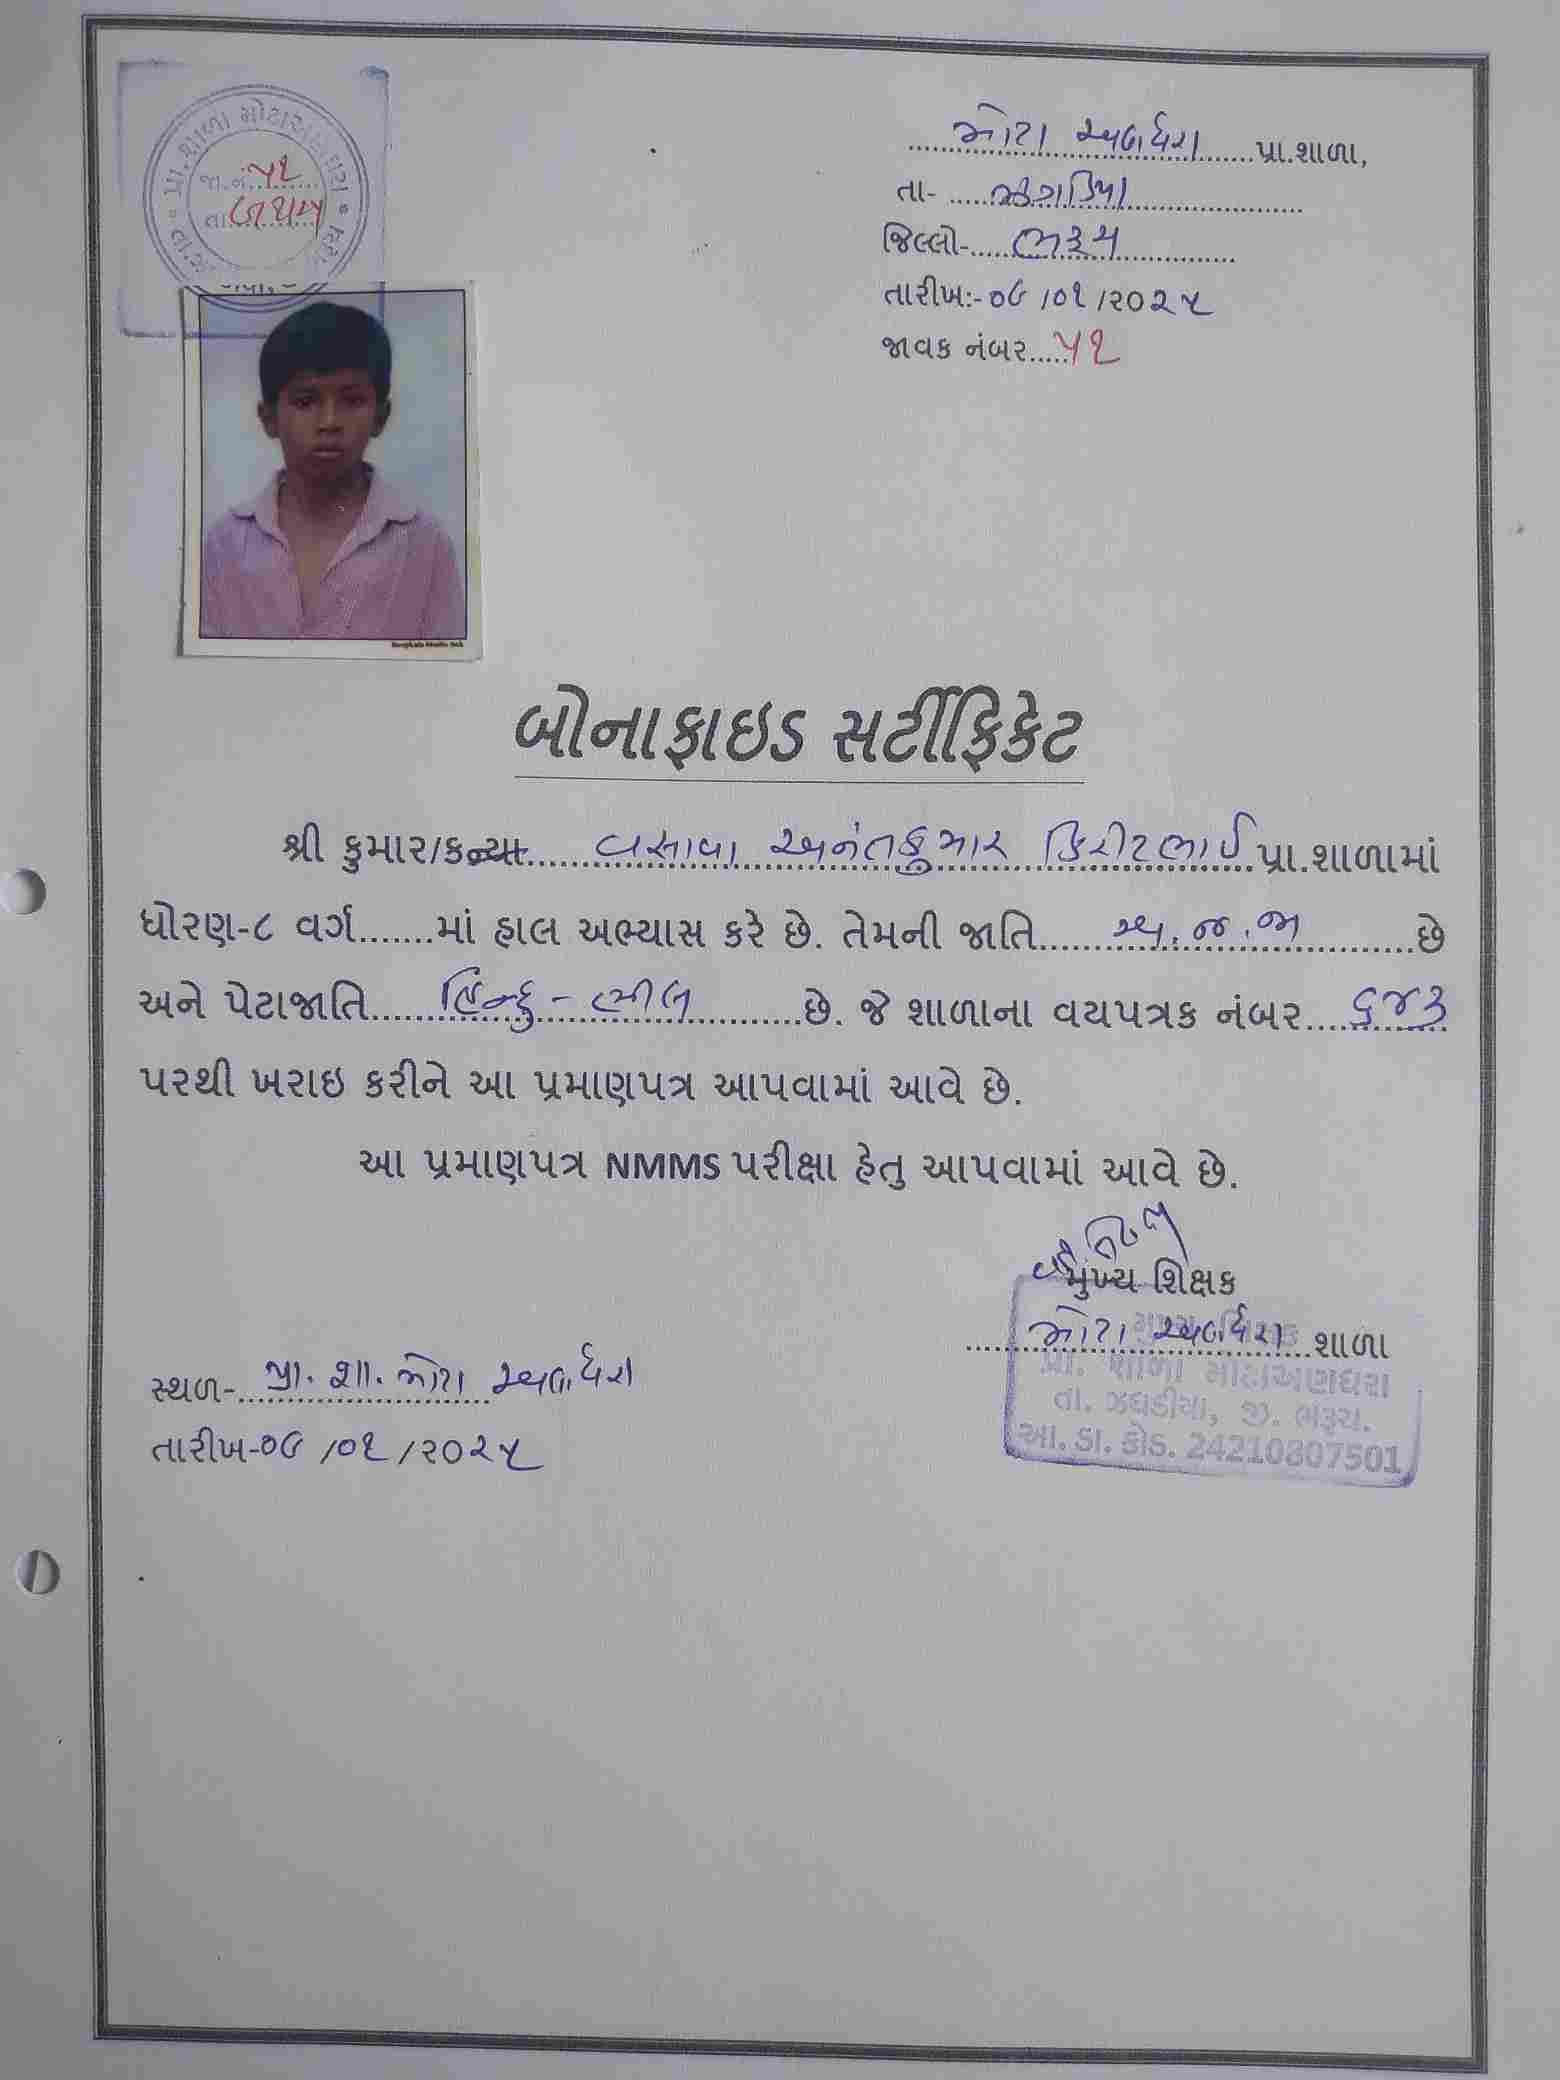 પ્રા.શાળા મોટાઅણધરા
જા.નં. ૫૧
તા.
મોટા અણધરા પ્રા.શાળા,
તા- ઝગડિયા
જિલ્લો- ભરૂચ
તારીખ:-૦૯/૦૧/૨૦૨૫
જાવક નંબર.....૫૧
બોનાફાઇડ સર્ટીફિકેટ
શ્રી કુમાર/કન્યા વસાવા અનંતકુમાર કિરીટભાઈ પ્રા.શાળામાં
ધોરણ-૮ વર્ગ.......માં હાલ અભ્યાસ કરે છે. તેમની જાતિ અ.જ.જા છે
અને પેટાજાતિ હિન્દુ - ભીલ છે. જે શાળાના વયપત્રક નંબર ૬૪૩
પરથી ખરાઇ કરીને આ પ્રમાણપત્ર આપવામાં આવે છે.
આ પ્રમાણપત્ર NMMS પરીક્ષા હેતુ આપવામાં આવે છે.
મુખ્ય શિક્ષક
મોટા અણધરા શાળા
પ્રા. શાળા મોટાઅણધરા
તા. ઝઘડીયા, જી. ભરૂચ.
આ. ડા. કોડ. 24210807501
સ્થળ- પ્રા. શા. મોટા અણધરા
તારીખ-૦૯/૦૧/૨૦૨૫